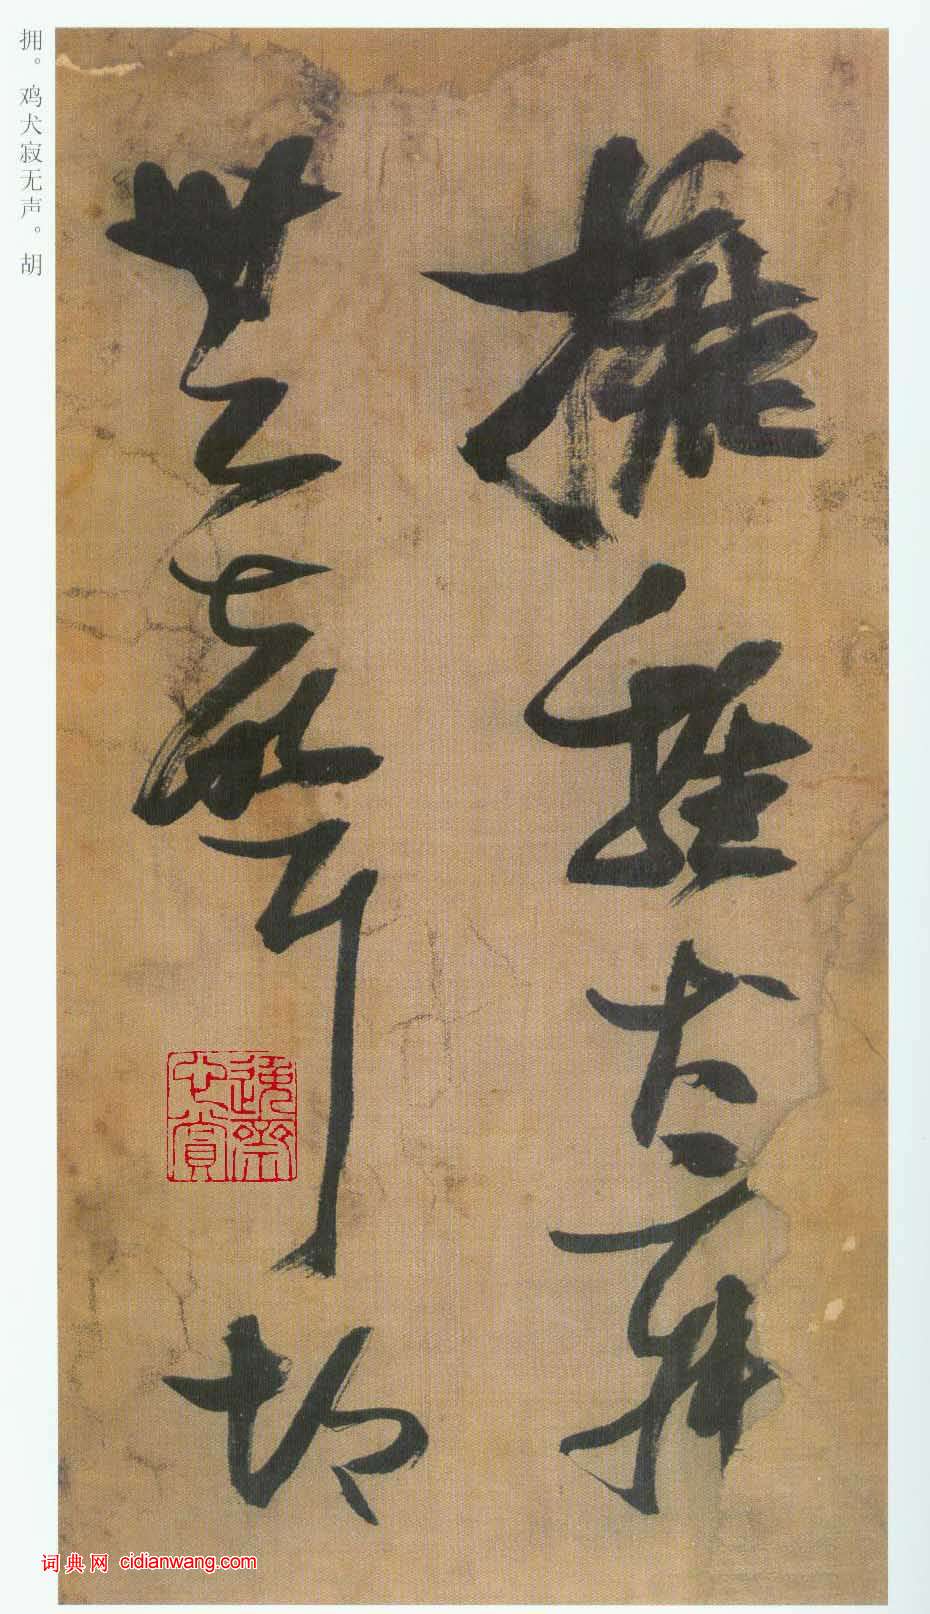 擁雞犬寂
無聲胡
拥。鸡犬寂无声。胡
词典网 cidianwang.com